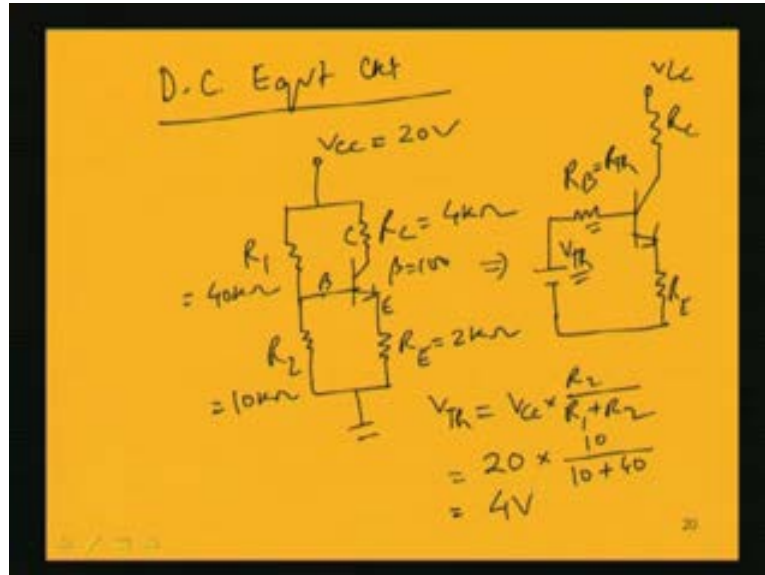 D.C. Eqnt Ckt
Vcc = 20V
R1
= 40kΩ
C
RC = 4kΩ
B
β=100
E
R2
= 10kΩ
RE = 2kΩ
⇒
Vcc
RC
RB = RTh
VTh
RE
VTh = Vcc × R2 / R1 + R2
= 20 × 10 / 10 + 40
= 4V
20